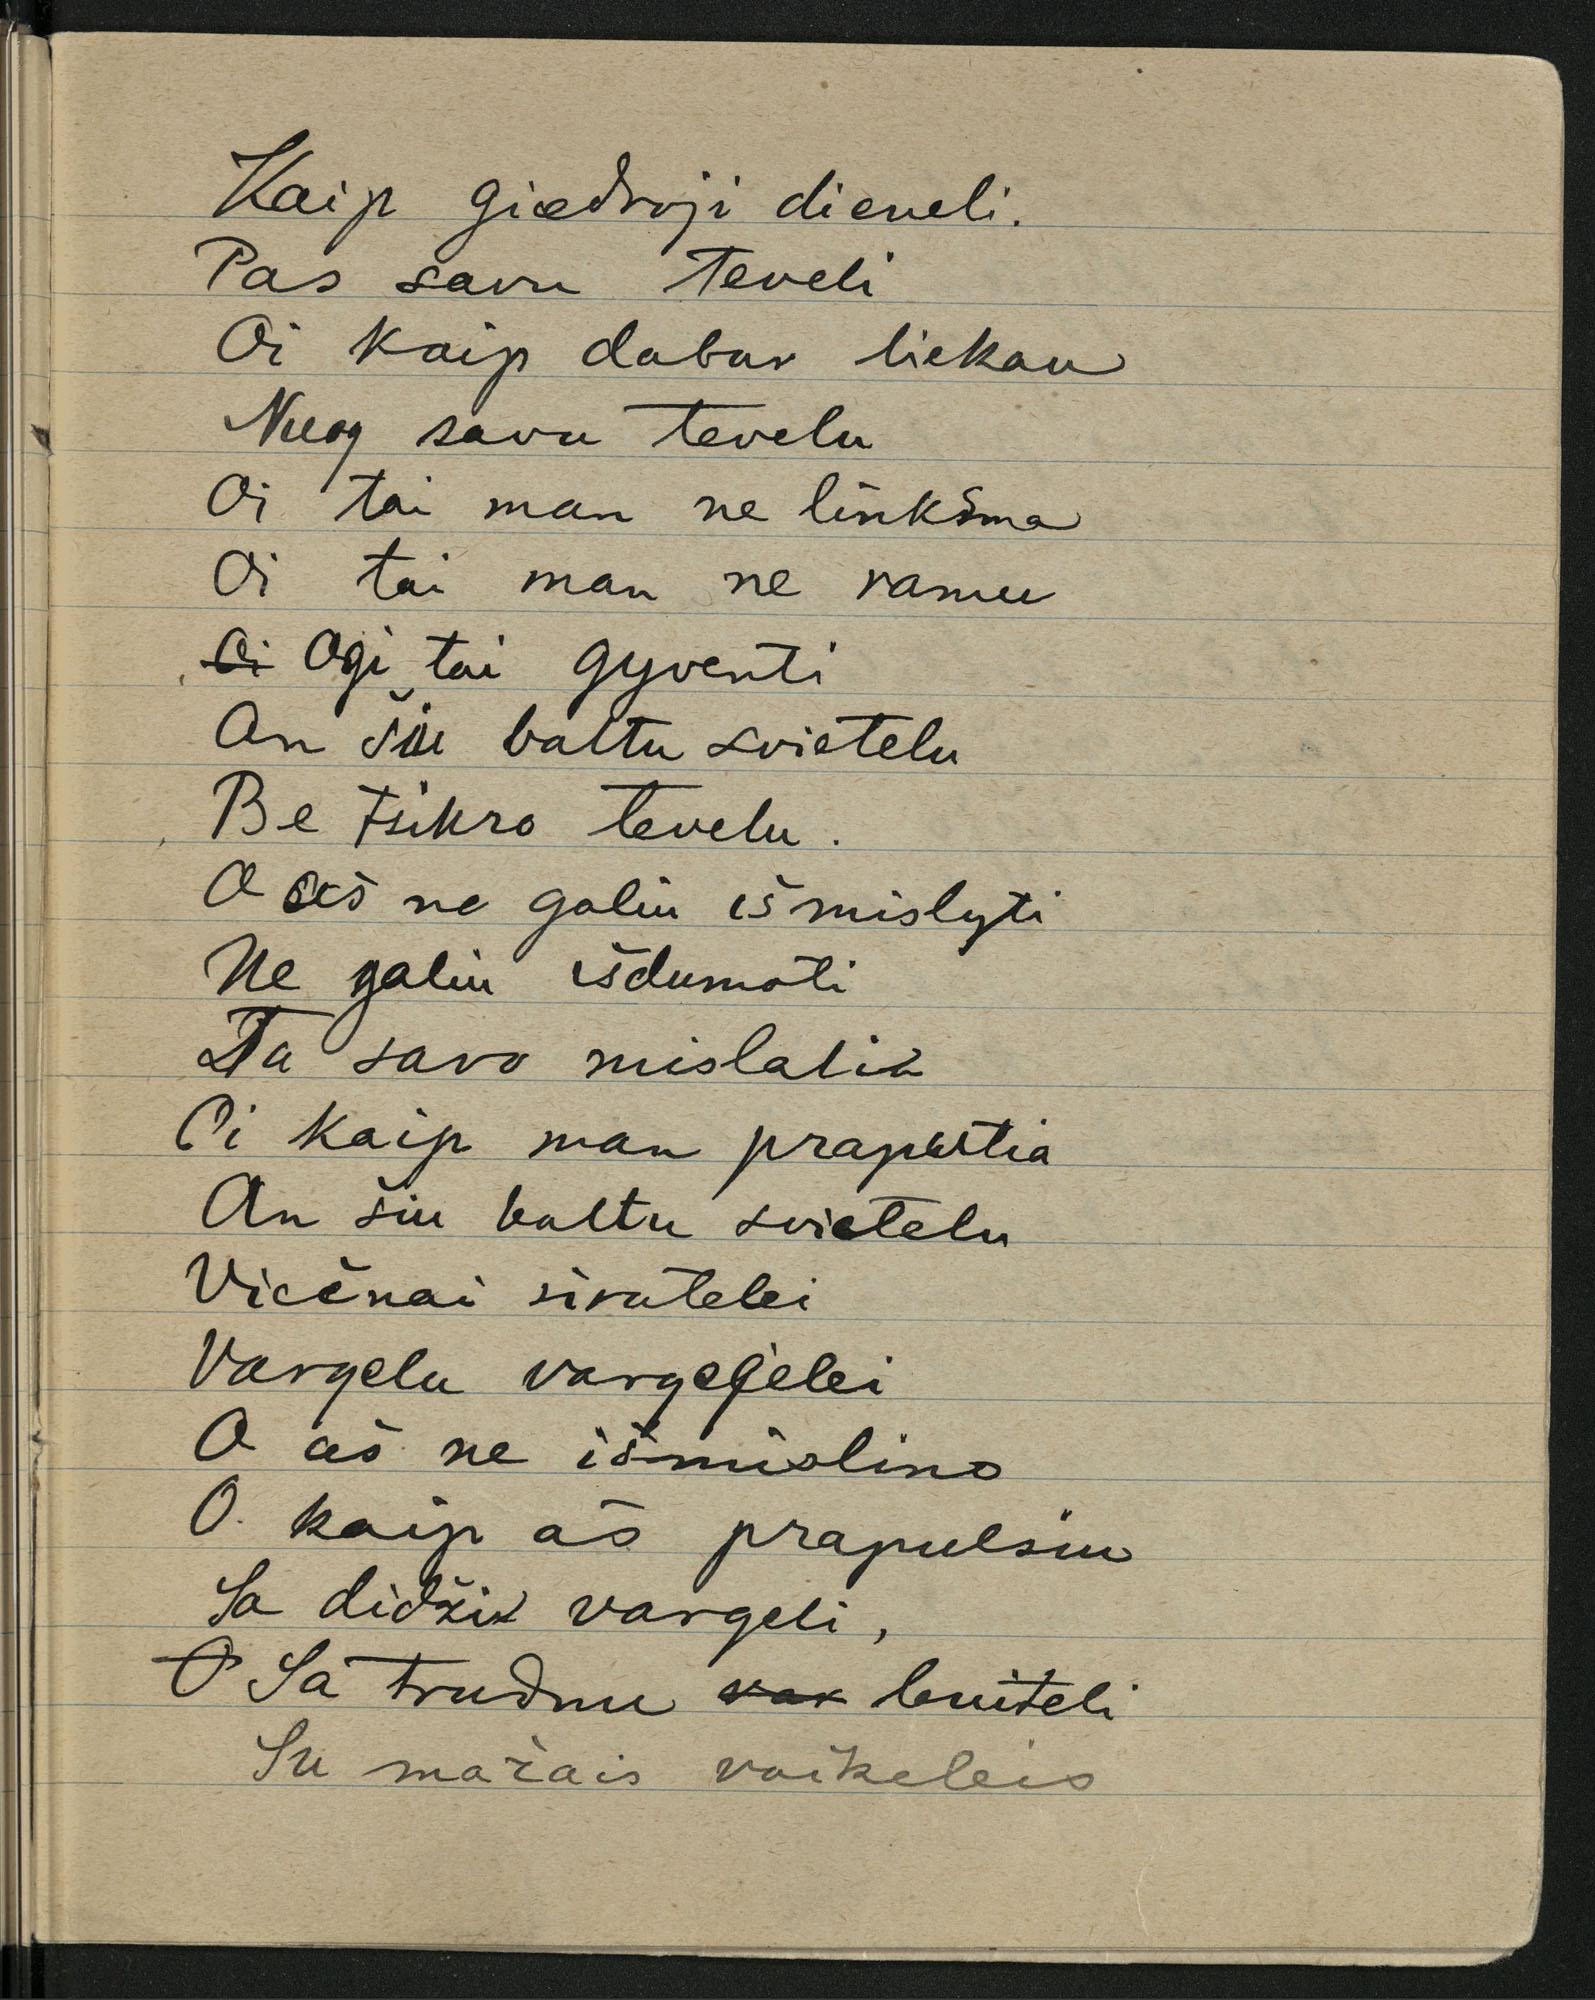 Kaip giedroji dieneli.
Pas savu teveli
Oi kaip dabar liekau
Nuog savu tevelu
Oi tai man ne linksma
Oi tai man ne ramu
Oi Ogi tai gyventi
An šiu baltu svietelu
Be tsikro tevelu.
O aš ne galiu išmislyti
Ne galiu išdumoti
Ta savo mislalia
Oi kaip man prapultia
An šiu baltu svietelu
Viešnai siratelei
Vargelu vargejelei
O aš ne išmislino
O kaip aš prapulsiu
Sa didžia vargeli,
O Sa trudnu var buiteli
Su mažais vaikeleis